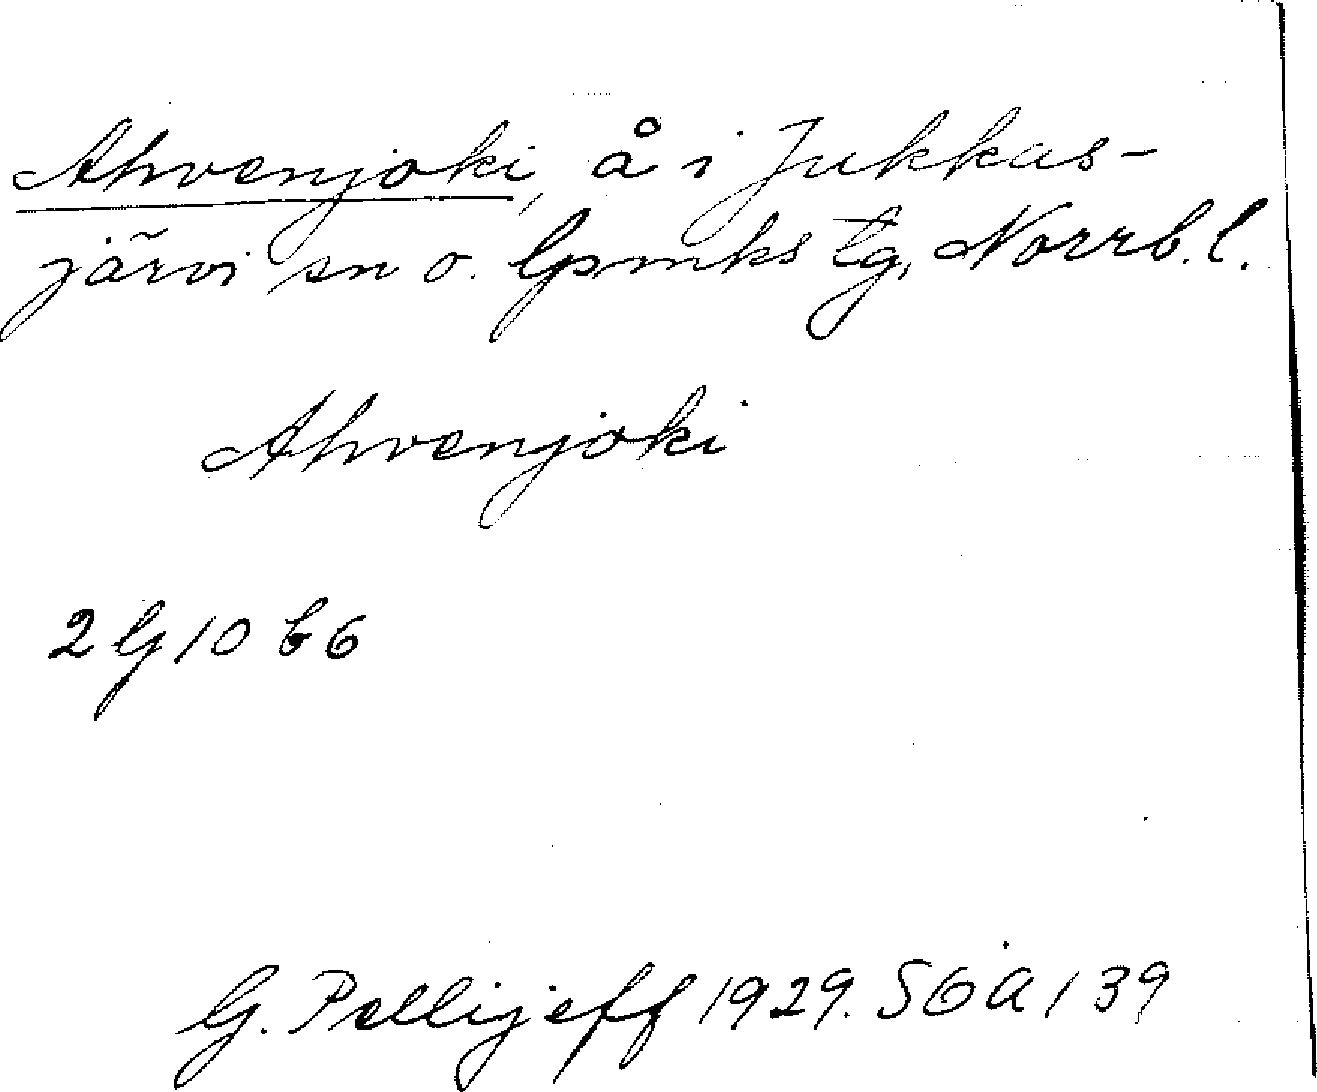 Ahvenjoki, å i Jukkas-
järvi sn o. lpmks tg, Norrb. l.
Ahvenjoki
2 G 10 b 6
G. Pellijeff 1929. SOA 139